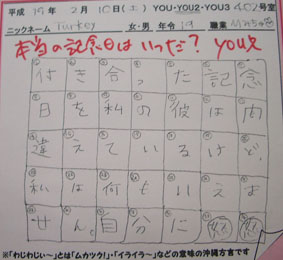 平成 19年 2月 10日(土) YOU・YOU2・YOU3 402号室
ニックネーム Turkey 女・男 年令 19 職業
本当の記念日はいつだ? YOU兄
付き合った記念
日を私の彼は内
違えているけど、
私は何もいいえま
せん。自分に 怒 怒
※「わじわじぃ~」とは「ムカツク!」・「イライラ~」などの意味の沖縄方言です